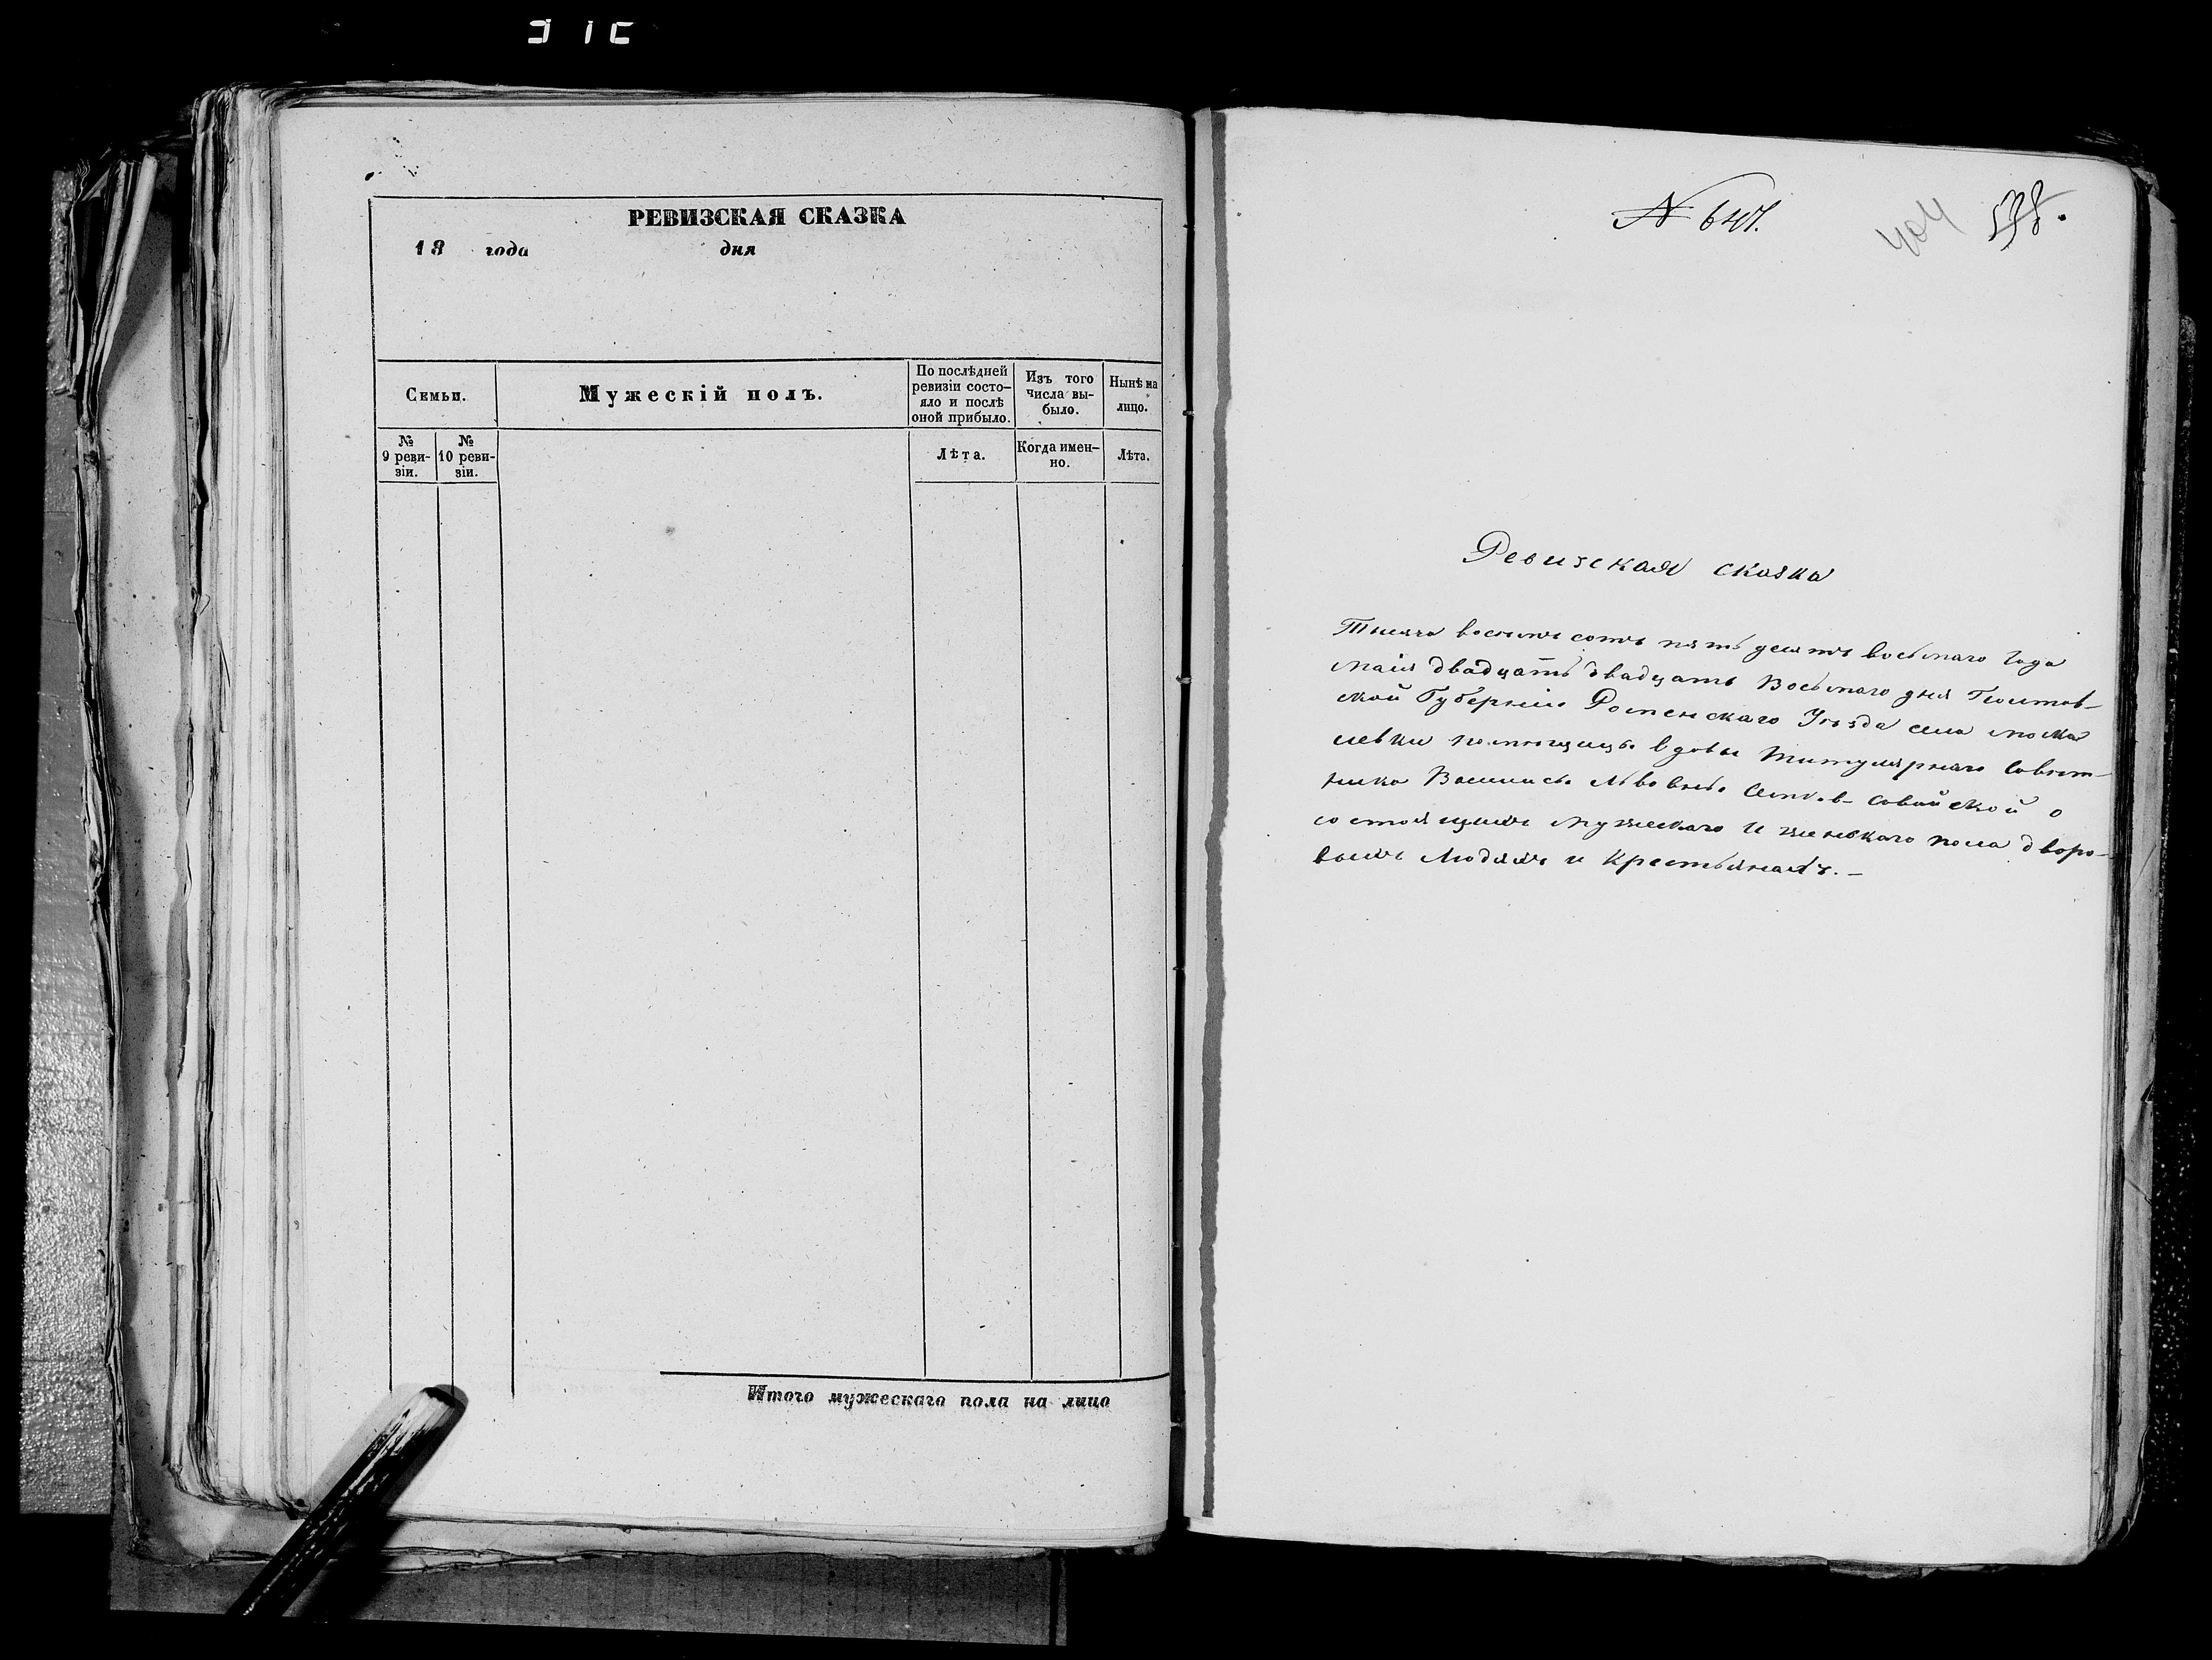 РЕВИЗСКАЯ СКАЗКА
18 года дня
Семьи.
Мужескій полъ.
По послѣдней ревизіи состо-
яло и послѣ оной прибыло.
Изъ того числа вы-
было.
Нынѣ на лицо.
№ 9 реви-
зіи.
№ 10 реви-
зіи.
Лѣта.
Когда имен-
но.
Лѣта.
Итого мужескаго пола на лицо
№ 647.
404
538.
Ревизская сказка
Тысяча восемь сотъ пять десятъ восьмаго года
маія двадцать двадцать Восьмаго дня Полтав-
ской Губерніи Роменскаго Уѣзда села
помѣщицы вдовы титулярнаго Совѣт-
ника Львовны о
состоящихъ мужескаго и женскаго пола дворо-
выхъ Людяхъ и Крестьянахъ.-